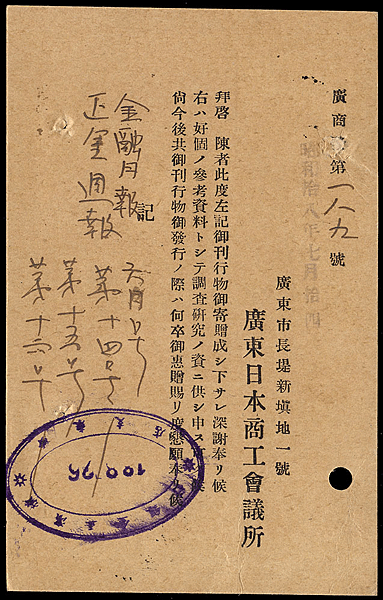 廣商 第一八九號
昭和拾八年七月拾四
廣東市長堤新塡地一號
廣東日本商工會議所
拜啓 陳者此度左記御刊行物御寄贈成シ下サレ深謝奉リ候
右ハ好個ノ參考資料トシテ調査硏究ノ資ニ供シ申ス 候
尙今後共御刊行物御發行ノ際ハ何卒御惠贈賜リ度懇願奉リ候
記
金融月報 六月号
正金週報 第十四号
第十五号
第十六号